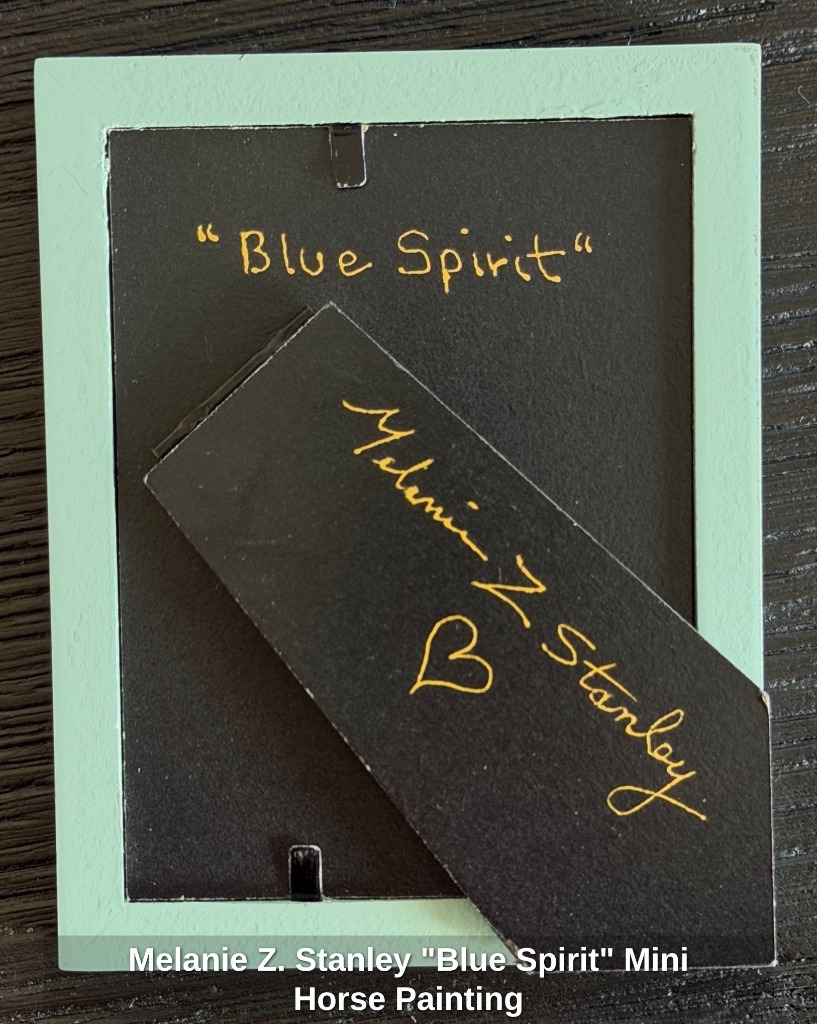 “Blue Spirit“
Melanie Z Stanley
Melanie Z. Stanley "Blue Spirit" Mini
Horse Painting